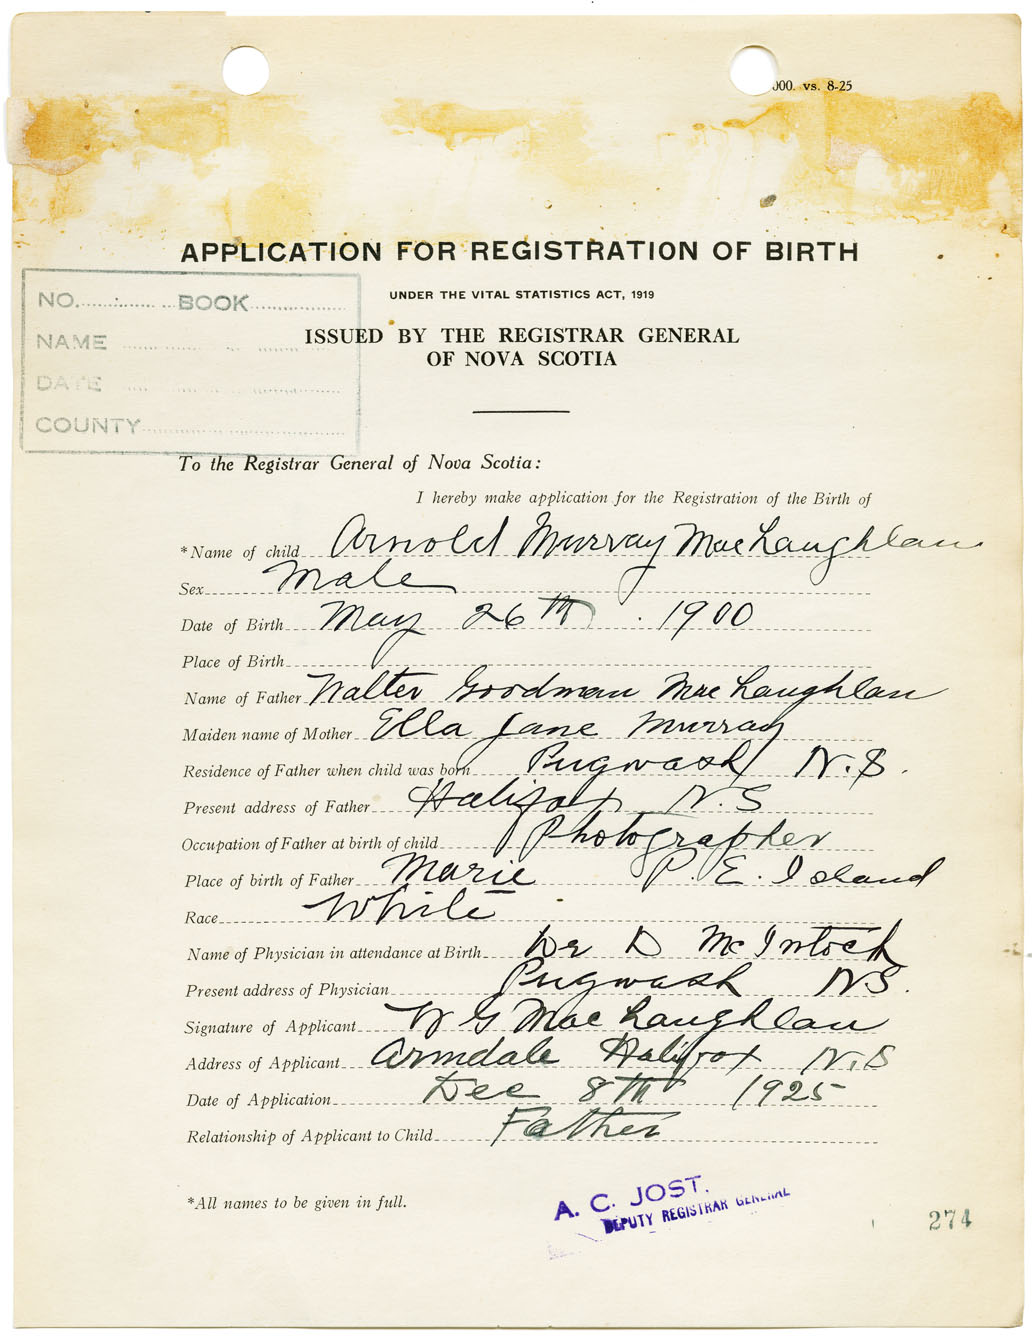 000. vs. 8-25
APPLICATION FOR REGISTRATION OF BIRTH
UNDER THE VITAL STATISTICS ACT, 1919
ISSUED BY THE REGISTRAR GENERAL
OF NOVA SCOTIA
NO. BOOK
NAME
DATE
COUNTY
To the Registrar General of Nova Scotia:
I hereby make application for the Registration of the Birth of
*Name of child Arnold Murray MacLaughlan
Sex Male
Date of Birth May 26th 1900
Place of Birth
Name of Father Walter Goodman MacLaughlan
Maiden name of Mother Ella Jane Murray
Residence of Father when child was born Pugwash N.S.
Present address of Father Halifax N.S
Occupation of Father at birth of child Photographer
Place of birth of Father Marie P. E. Island
Race White
Name of Physician in attendance at Birth Dr D McIntosh
Present address of Physician Pugwash NS.
Signature of Applicant W G MacLaughlan
Address of Applicant Armdale Halifax N.S
Date of Application Dec 8th 1925
Relationship of Applicant to Child Father
*All names to be given in full.
A. C. JOST.
DEPUTY REGISTRAR GENERAL
274